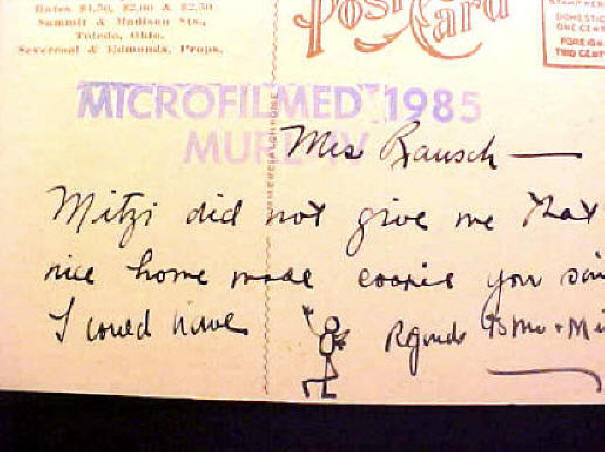 Rates $1.50, $2.00 & $2.50
Summit & Madison Sts.,
Toledo, Ohio.
& Edmunds, Props.
Post Card
DOMESTIC
ONE CENT
FOREIGN
TWO CENTS
MICROFILMED 1985
Mrs Bausch —
Mitzi did not give me that
nice home made cookie you said
I could have
Rgards to Mr + Mi